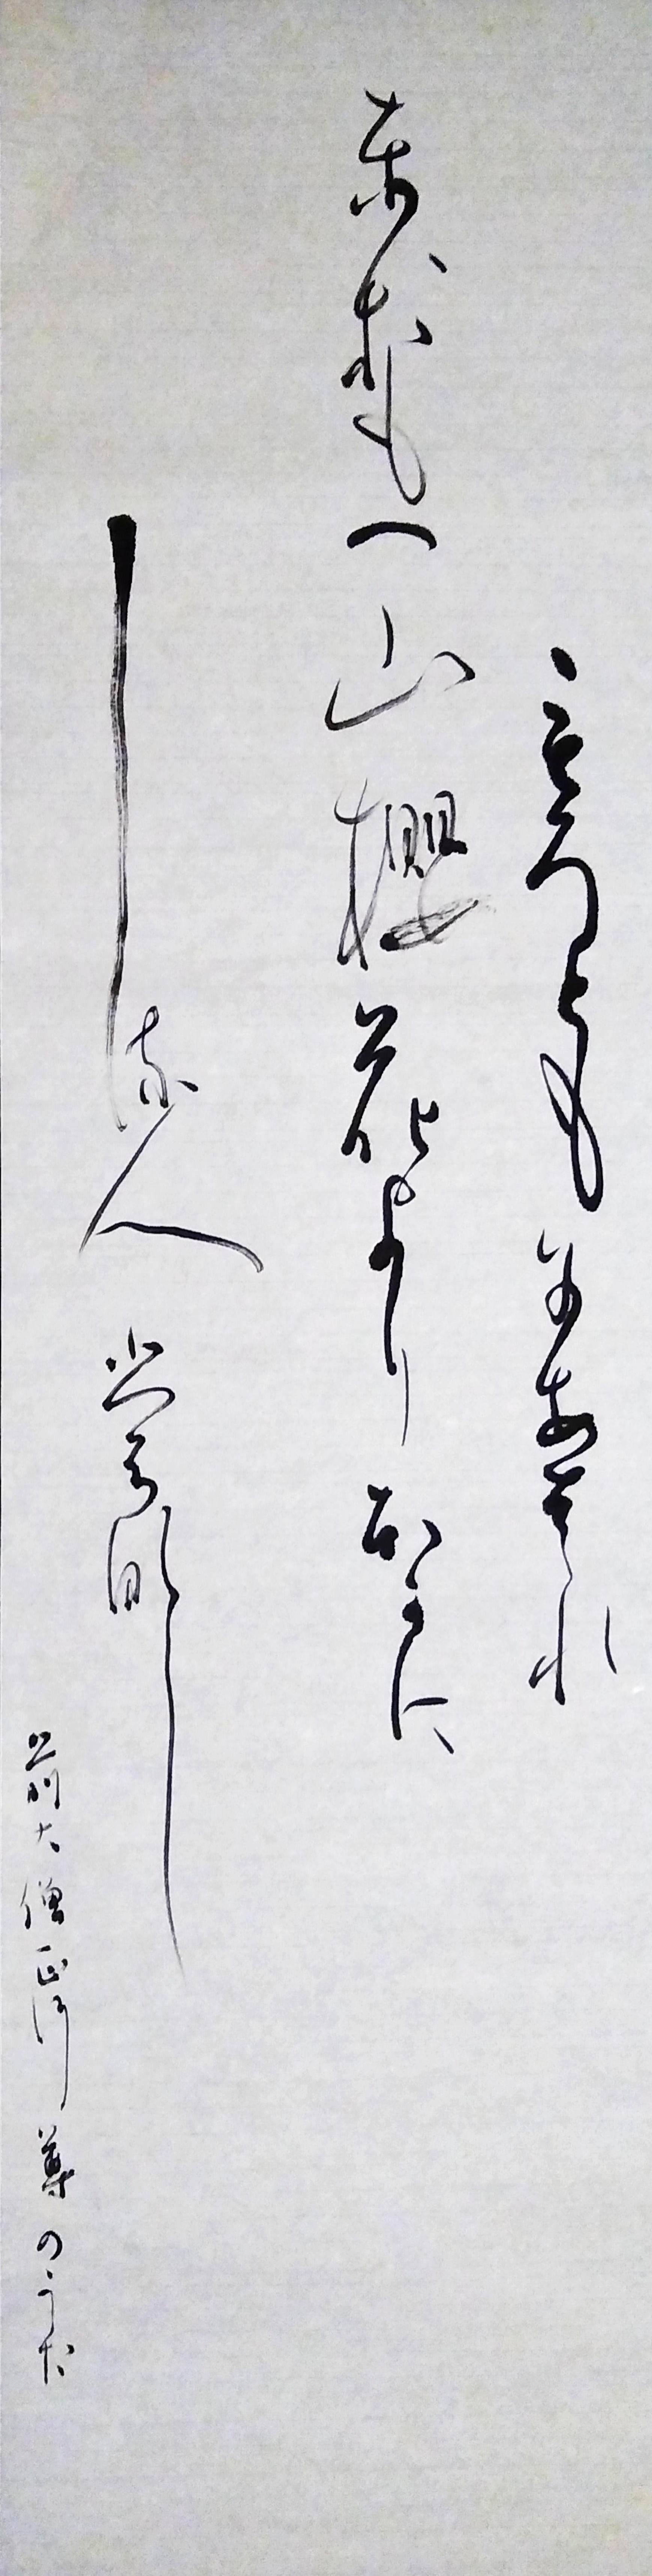 もろともにあはれ
とおもへ山櫻花よりほかに
しる人もなし
前大僧正行尊のうた